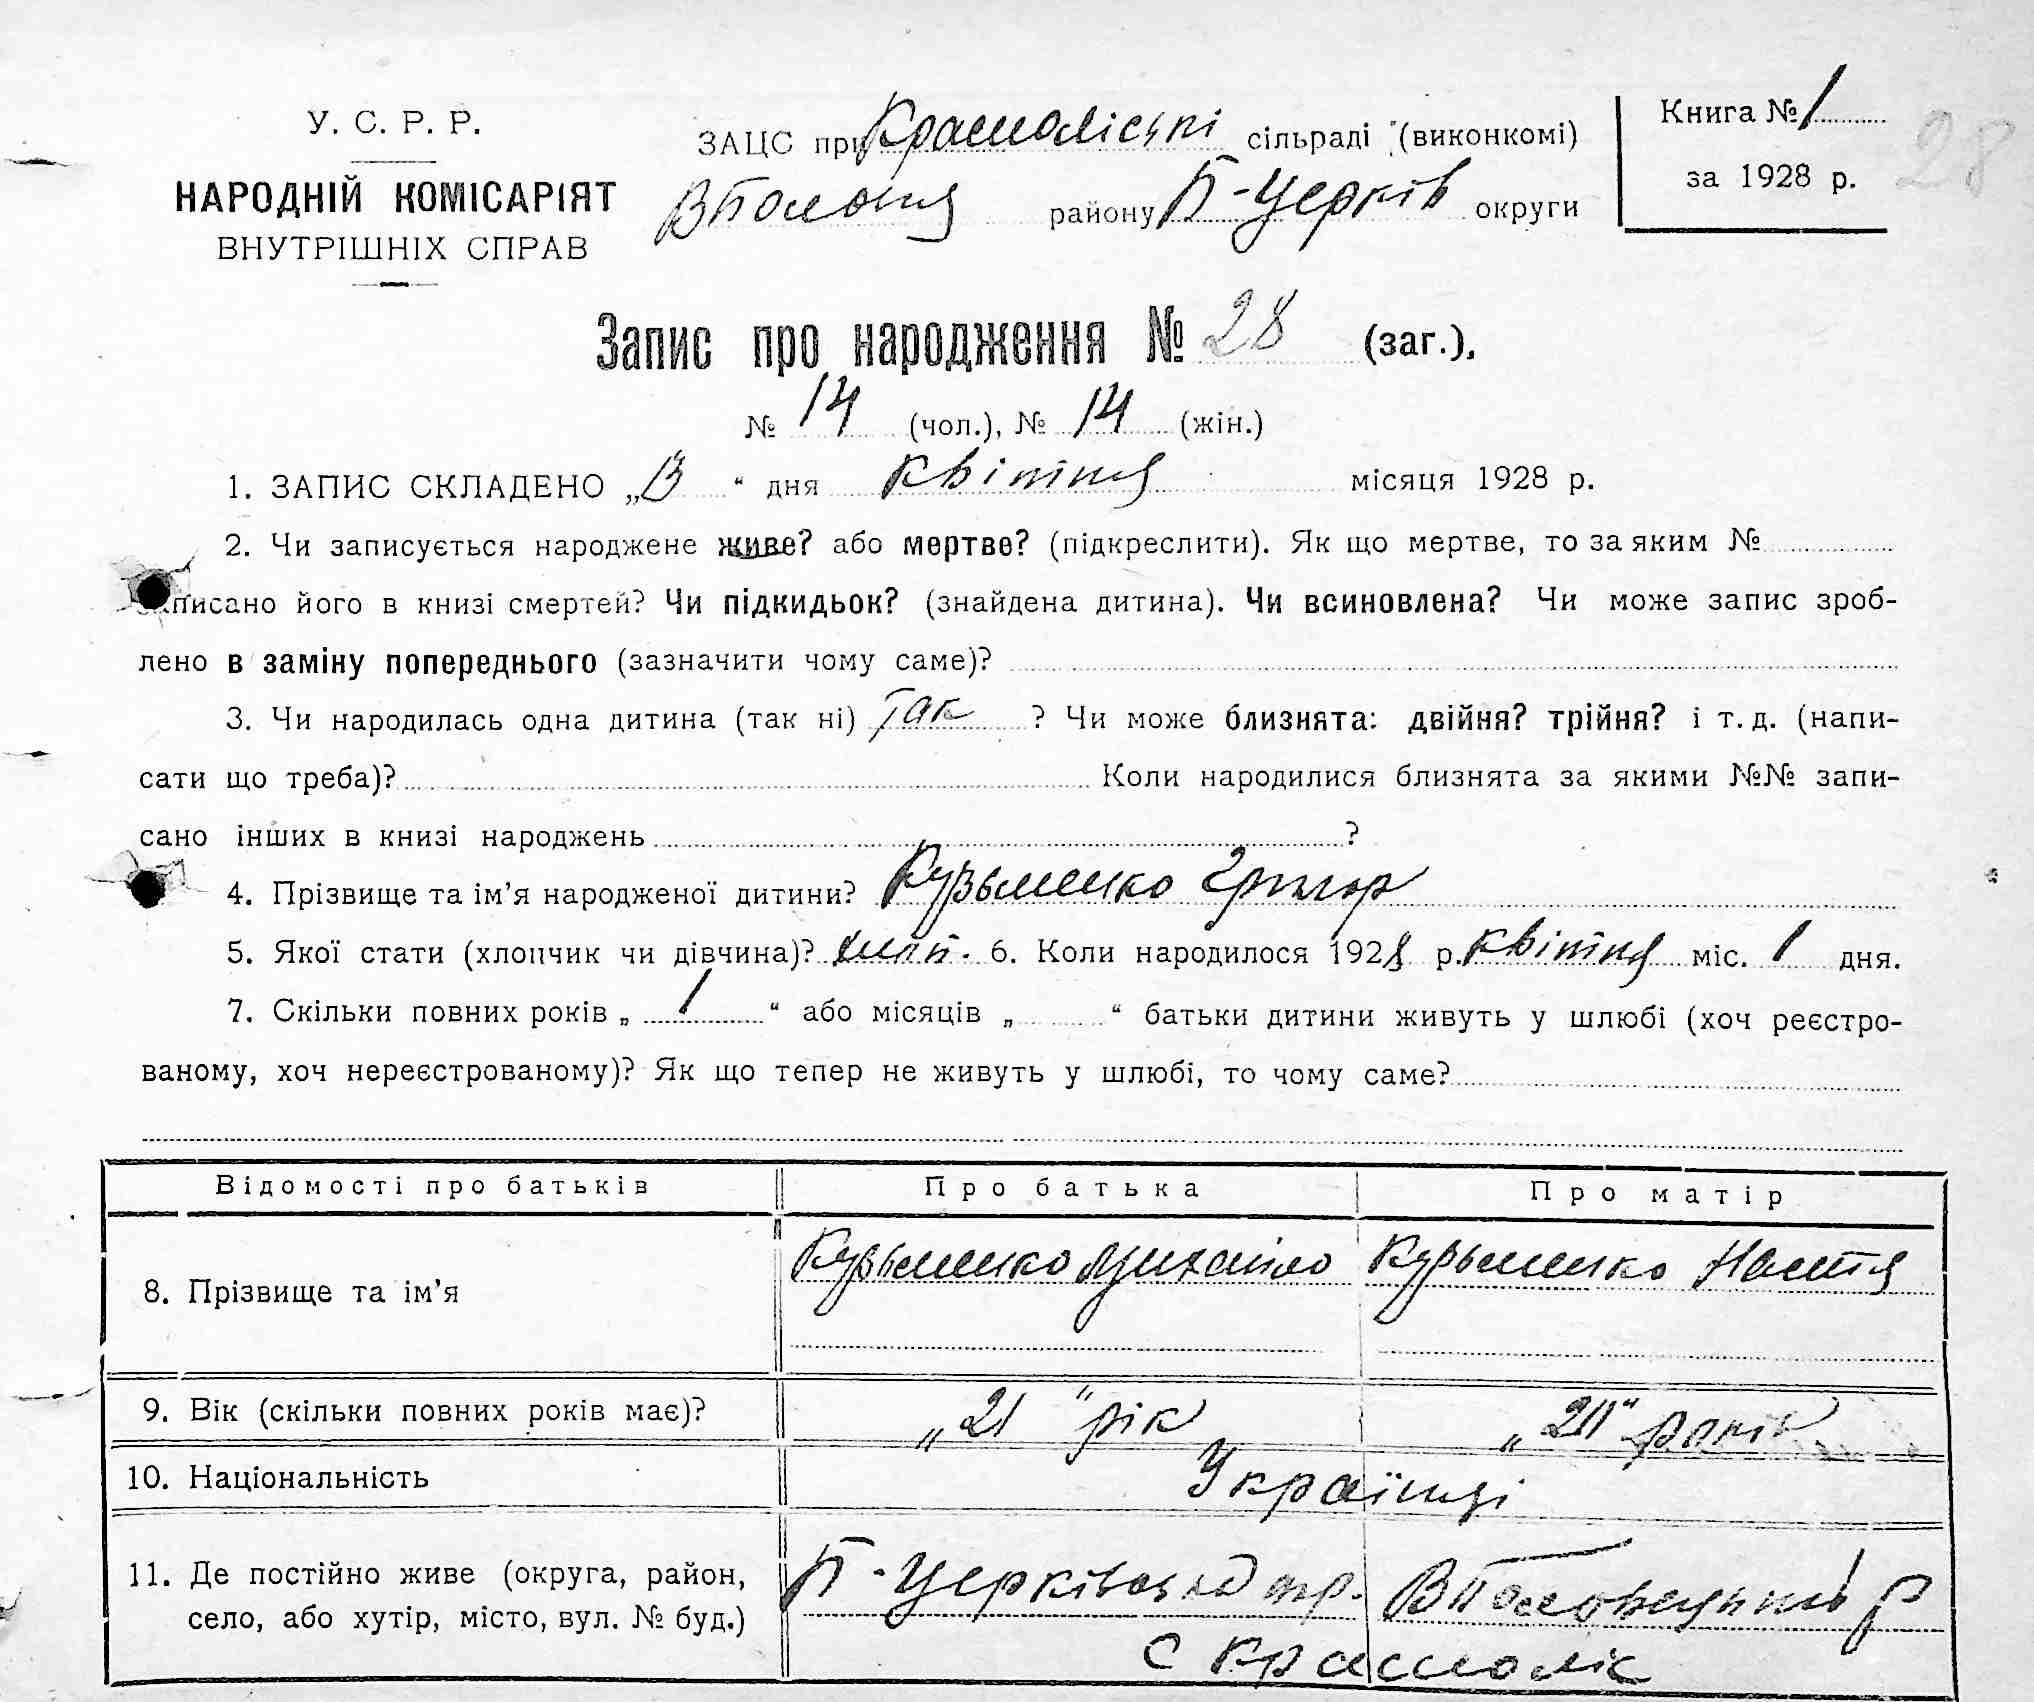 У. С. Р. Р.
НАРОДНІЙ КОМІСАРІЯТ
ВНУТРІШНІХ СПРАВ
ЗАЦС при сільраді (виконкомі)
району Б-Церків округи
Книга № 1
за 1928 р.
28
Запис про народження № 28 (заг.),
№ 14 (чол.), № 14 (жін.)
1. ЗАПИС СКЛАДЕНО „13“ дня квітня місяця 1928 р.
2. Чи записується народжене живе? або мертве? (підкреслити). Як що мертве, то за яким №
записано його в книзі смертей? Чи підкидьок? (знайдена дитина). Чи всиновлена? Чи може запис зроб-
лено в заміну попереднього (зазначити чому саме)?
3. Чи народилась одна дитина (так ні) так ? Чи може близнята: двійня? трійня? і т. д. (напи-
сати що треба)? Коли народилися близнята за якими №№ запи-
сано інших в книзі народжень ?
4. Прізвище та ім’я народженої дитини? Кузьменко Григор
5. Якої стати (хлопчик чи дівчина)? хлоп. 6. Коли народилося 1928 р. квітня міс. 1 дня.
7. Скільки повних років „ 1 “ або місяців „ “ батьки дитини живуть у шлюбі (хоч реєстро-
ваному, хоч нереєстрованому)? Як що тепер не живуть у шлюбі, то чому саме?
Відомості про батьків Про батька Про матір
8. Прізвище та ім’я Кузьменко Михайло Кузьменко Настя
9. Вік (скільки повних років має)? „21“ рік „20“ років
10. Національність Українці
11. Де постійно живе (округа, район,
село, або хутір, місто, вул. № буд.)
Б-Церківська окр. р
с